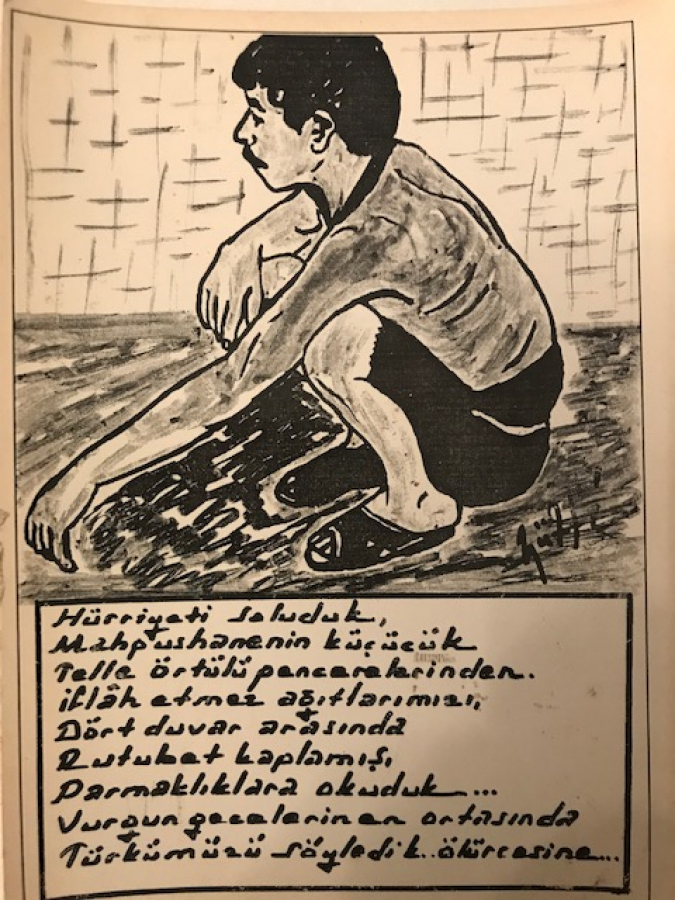 Hürriyeti soluduk,
Mahpushanenin küçücük
Telle örtülü pencerelerinden.
iflâh etmez ağıtlarımızı,
Dört duvar arasında
Rutubet kaplamış,
Parmaklıklara okuduk...
Vurgun gecelerinen ortasında
Türkümüzü söyledik.. ölürcesine...